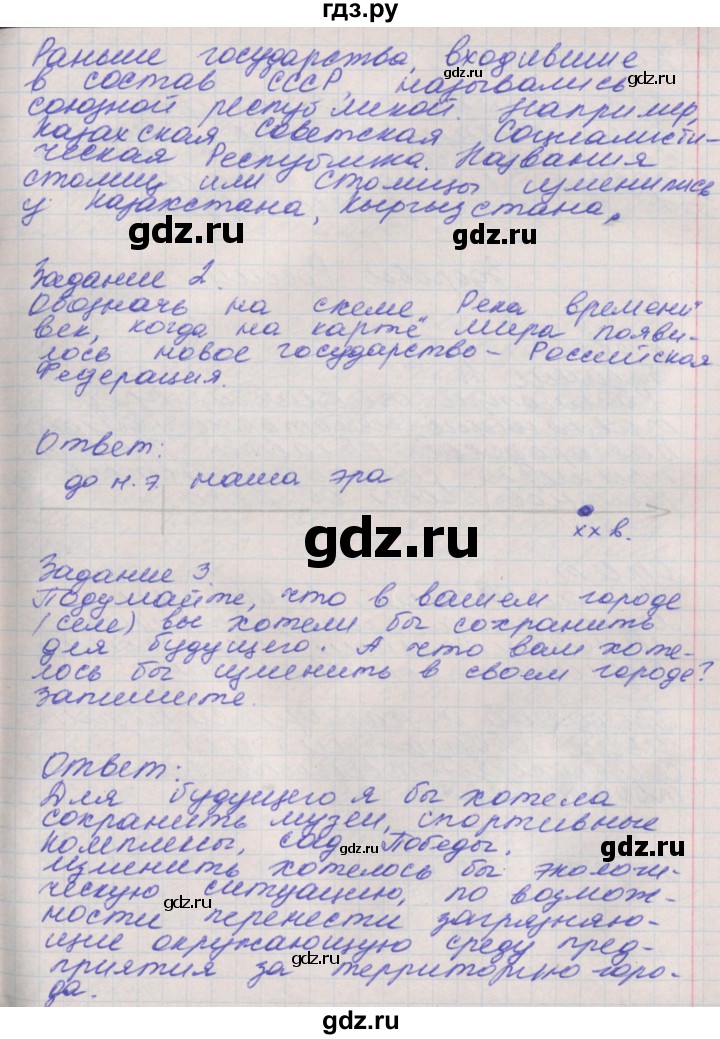 гдз.ру
Раньше государства, входившие
gdz.ru
gdz.ru
в состав СССР, назывались
союзной республикой. Например,
Казахская Советская Социалисти-
ческая Республика. Названия
столиц или столицы изменились
у Казахстана, Кыргызстана,
gdz.ru
gdz.ru
Задание 2.
Обозначь на схеме „Река времени"
век, когда на карте мира появи-
лось новое государство - Российская
Федерация.
Ответ:
до н.э. наша эра
gdz.ru
xx в.
Задание 3.
Подумайте, что в вашем городе
(селе) вы хотели бы сохранить
для будущего. А что вам хоте-
лось бы изменить в своем городе?
Запишите.
Ответ:
Для будущего я бы хотела
сохранить музеи, спортивные
комплексы, сад Победы.
gdz.ru
Изменить хотелось бы экологи-
ческую ситуацию, по возмож-
gdz.ru
ности перенести загрязняю-
щие окружающую среду пред-
приятия за территорию горо-
да.
gdz.ru
gdz.ru